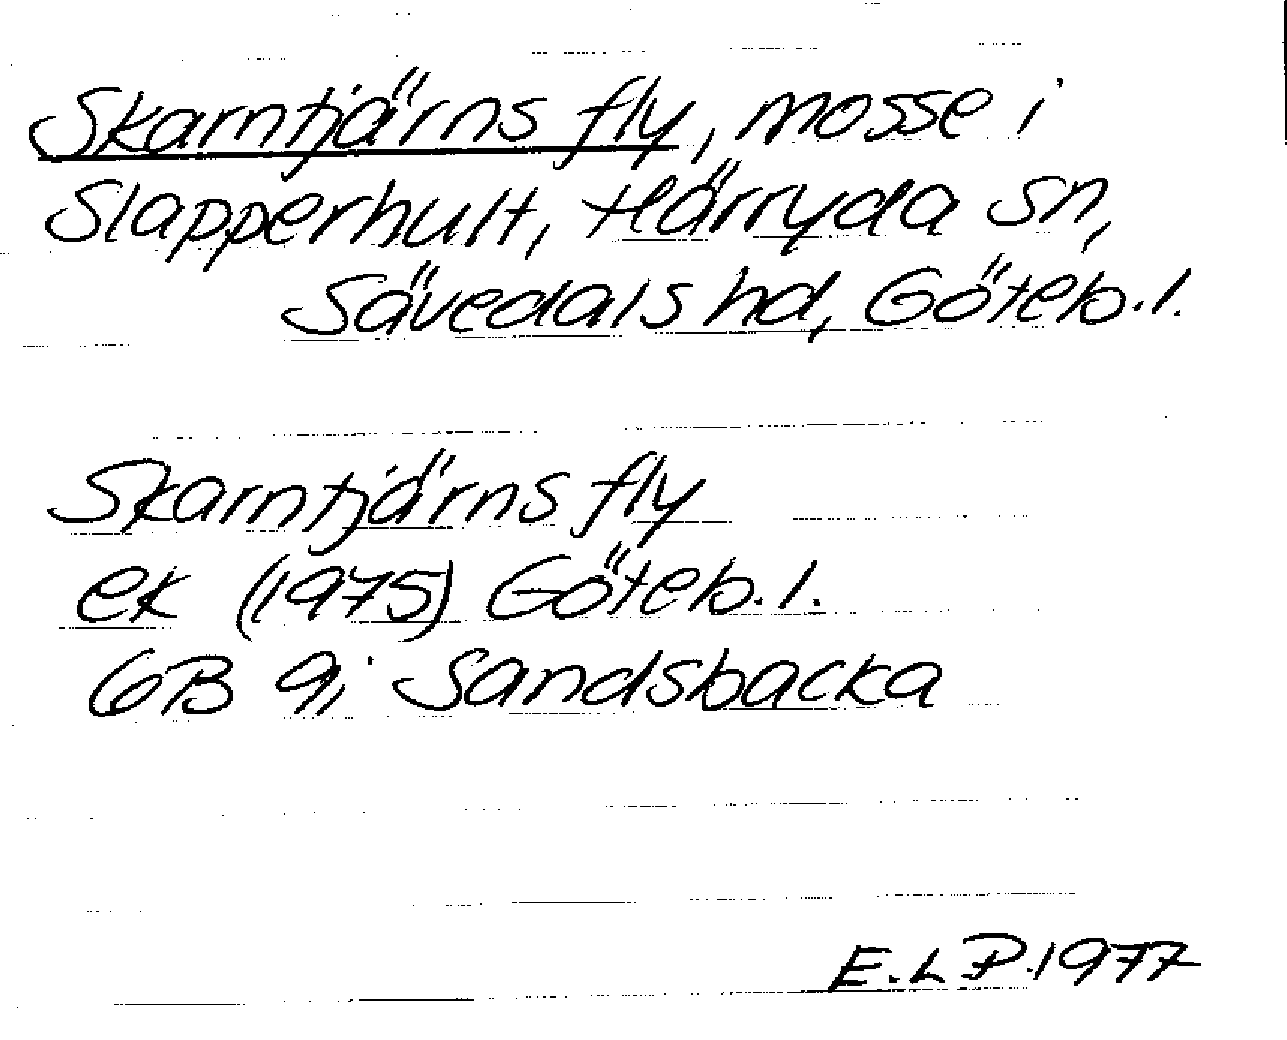 Skarntjärns fly, mosse i
Slapperhult, Härryda sn,
Sävedals hd, Göteb.l.
Skarntjärns fly
ek (1975) Göteb.l.
6B 9i Sandsbacka
E.L P.1977